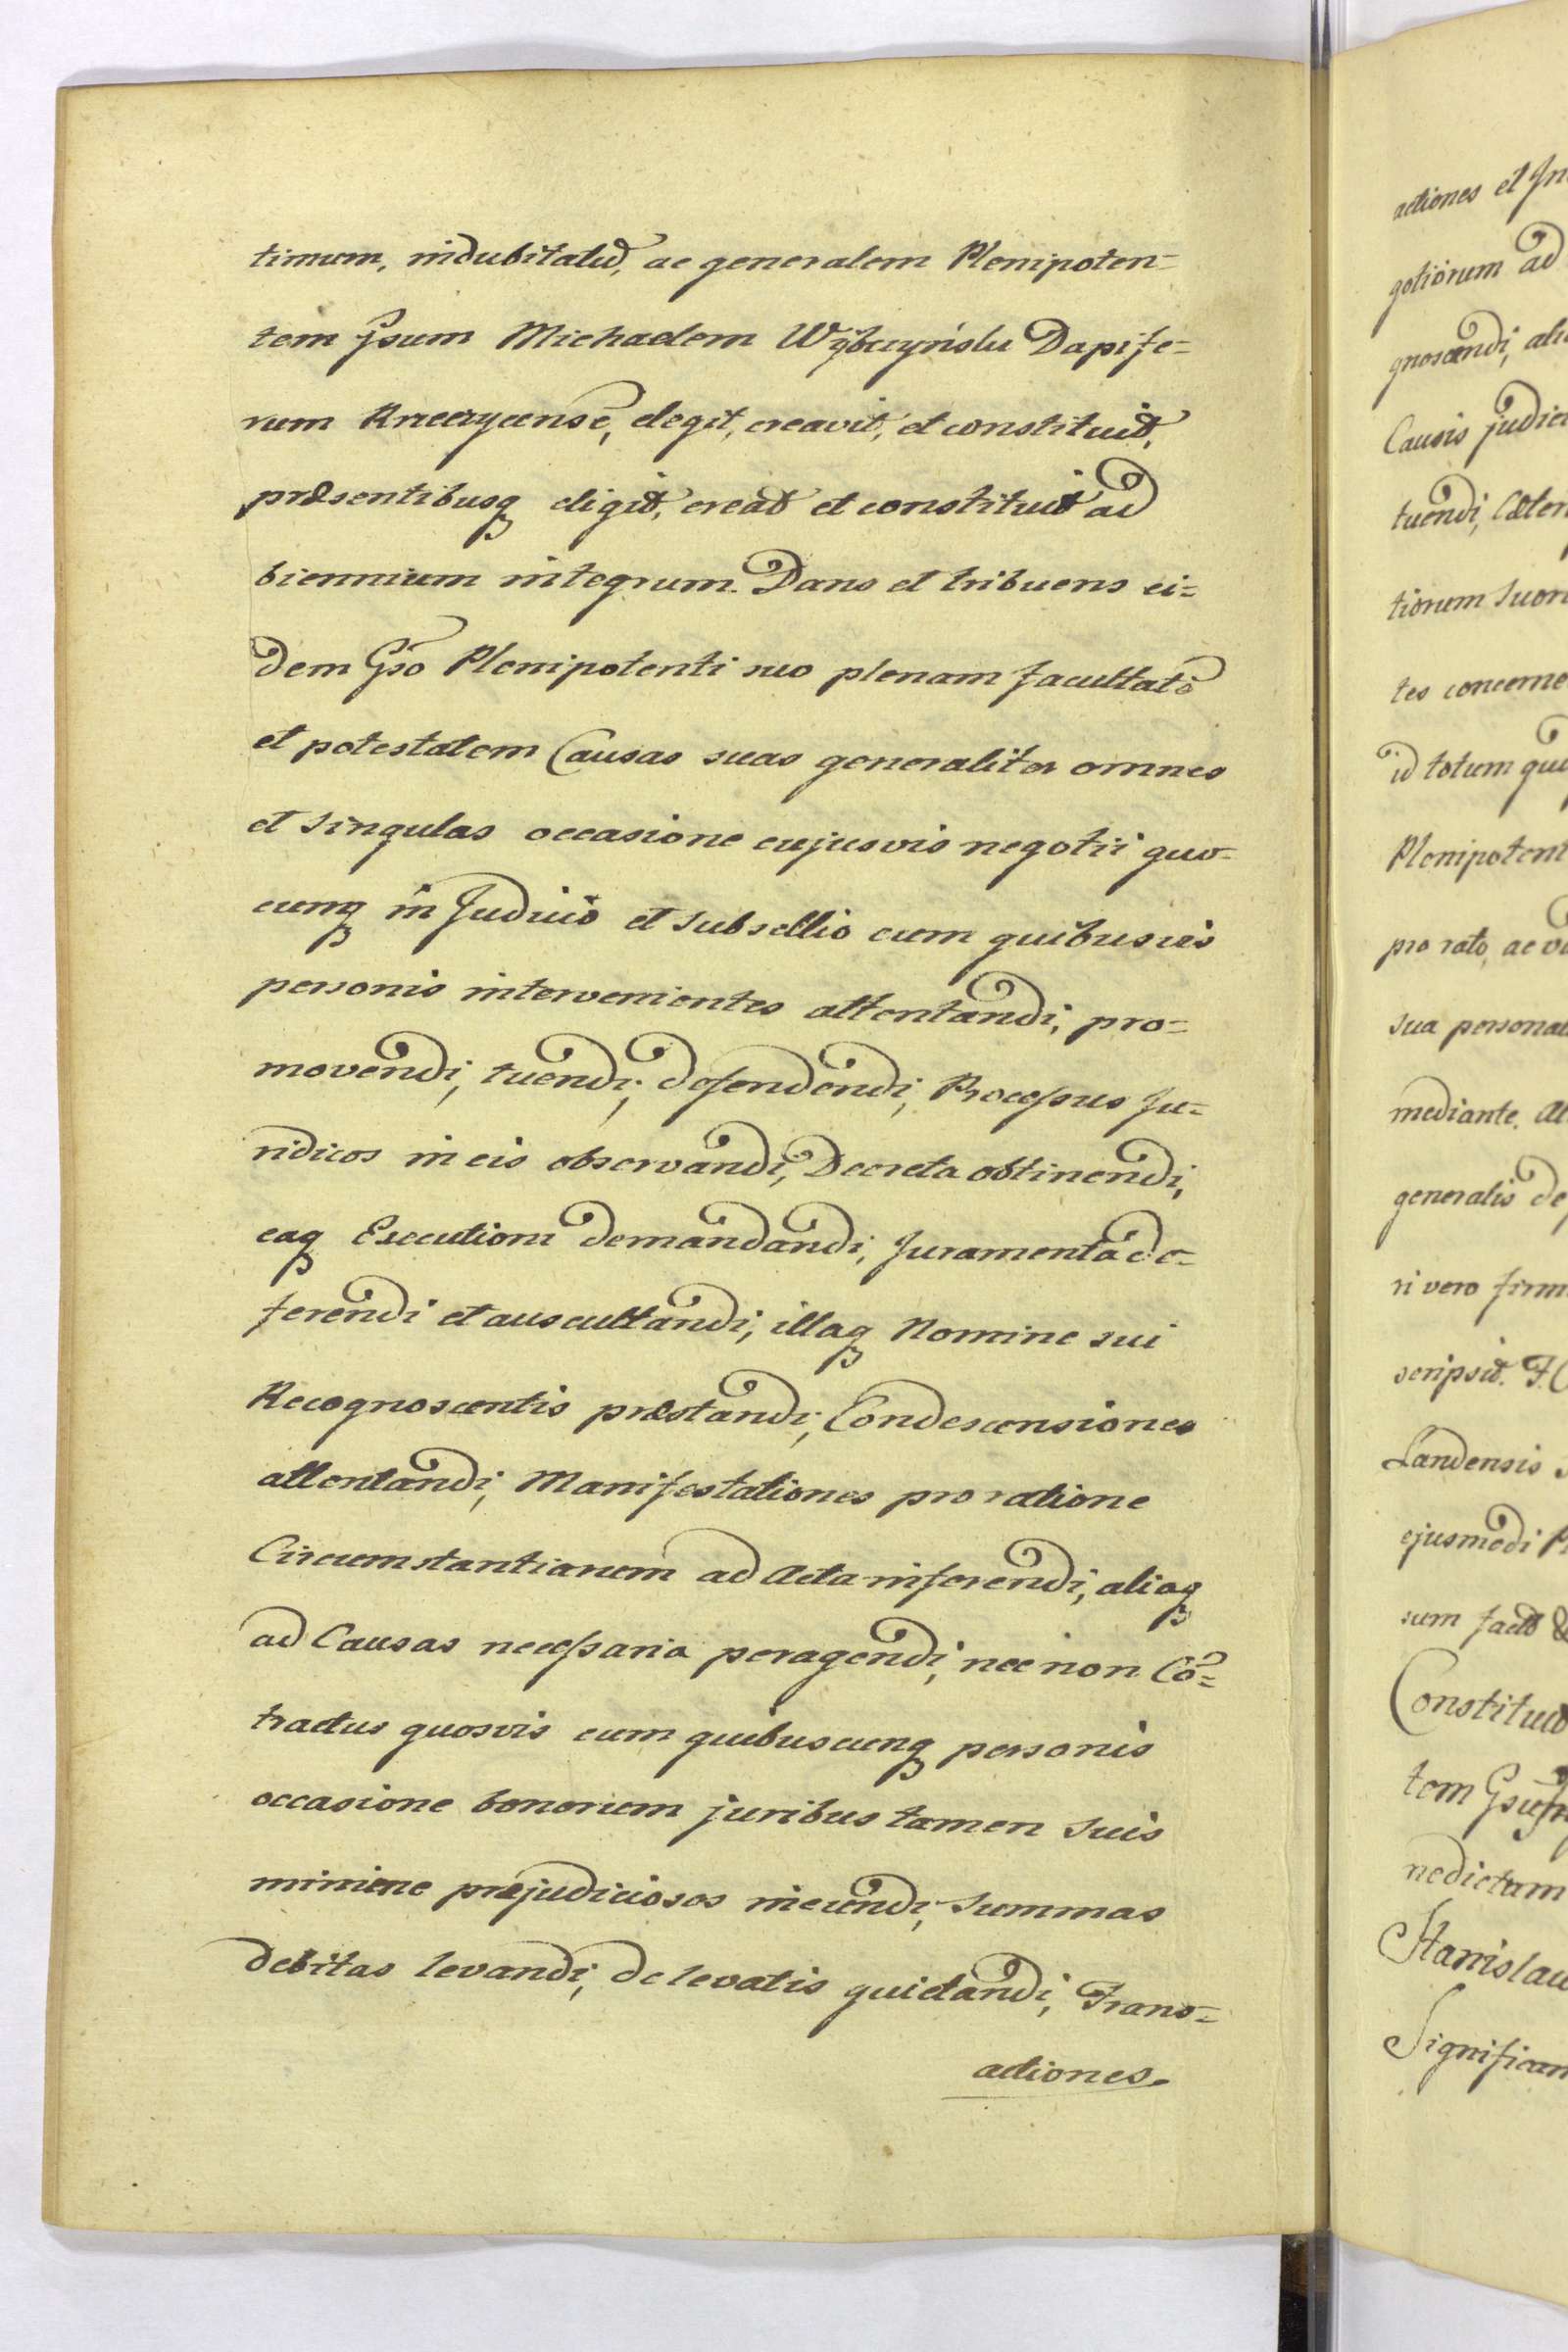 timum, indubitatū, ac generalem Plenipoten=
tem Gsum Michaelem Wÿbczyńsku Dapife=
rum Krzeczycensē, elegit, creavit, et constituit,
præsentibusq̃ eligit, creat et constituit ad
biennium integrum. Dans et tribuens ei=
dem Gso Plenipotenti suo plenam facultatē
et potestatem Causas suas generaliter omnes
et singulas occasione cujusvis negotii quo-
cunq̃ in Judicio et subsellio cum quibusvis
personis intervenientes attentandi, pro=
movendi, tuendi, defendendi, Processus Ju=
ridicos in eis observandi, Decreta obtinendi,
eaq̃ Executioni demandandi, Juramenta de=
ferendi et auscultandi, illaq̃ Nomine sui
Recognoscentis præstandi, Condescensiones
attentandi, Manifestationes pro ratione
Circumstantiarum ad Acta inferendi, aliaq̃
ad Causas necessaria peragendi, nec non Cō=
tractus quosvis cum quibuscunq̃ personis
occasione bonorum juribus tamen suis
minime præjudiciosos ineundi, Summas
debitas levandi, de levatis quietandi, Trans=
actiones.
actiones et In
gotiorum ad
gnoscendi, ali
Causis judici
tuendi, Cæter
tiorum suor
tes concerne
id totum qui
Plenipotent
pro rato, ac
sua personal
mediante. Al
generalis de
ri vero firm
scripsit. F. C
Landensis
ejusmodi P
sum facto &
Constituit
tem Gsu
nedictum
Stanislau
Significan